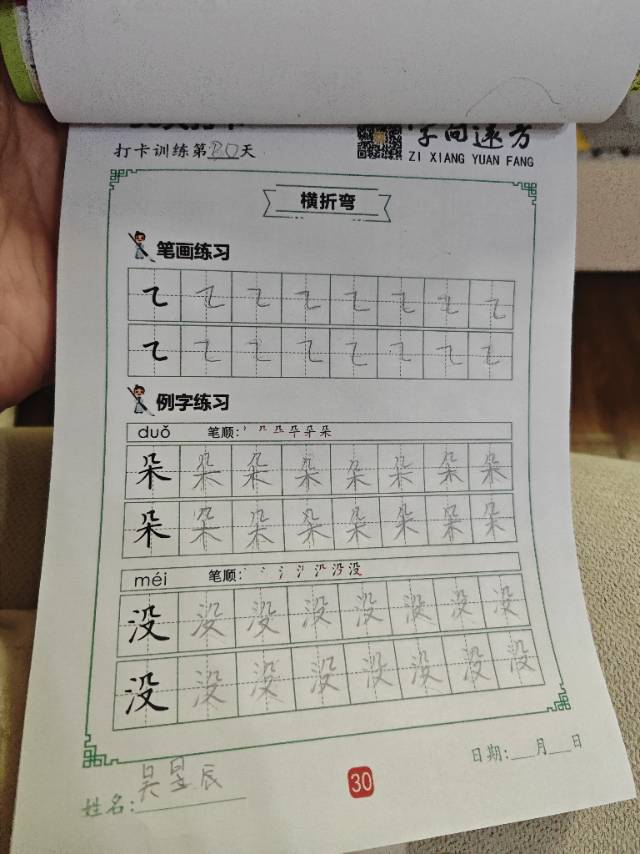 字向远方
打卡训练第30天
ZI XIANG YUAN FANG
横折弯
笔画练习
例字练习
duǒ 笔顺:
朵 朵 朵 朵 朵 朵 朵 朵
朵 朵 朵 朵 朵 朵 朵 朵
méi 笔顺:
没 没 没 没 没 没 没 没
没 没 没 没 没 没 没 没
日期:___月___日
姓名:吴昱辰
30